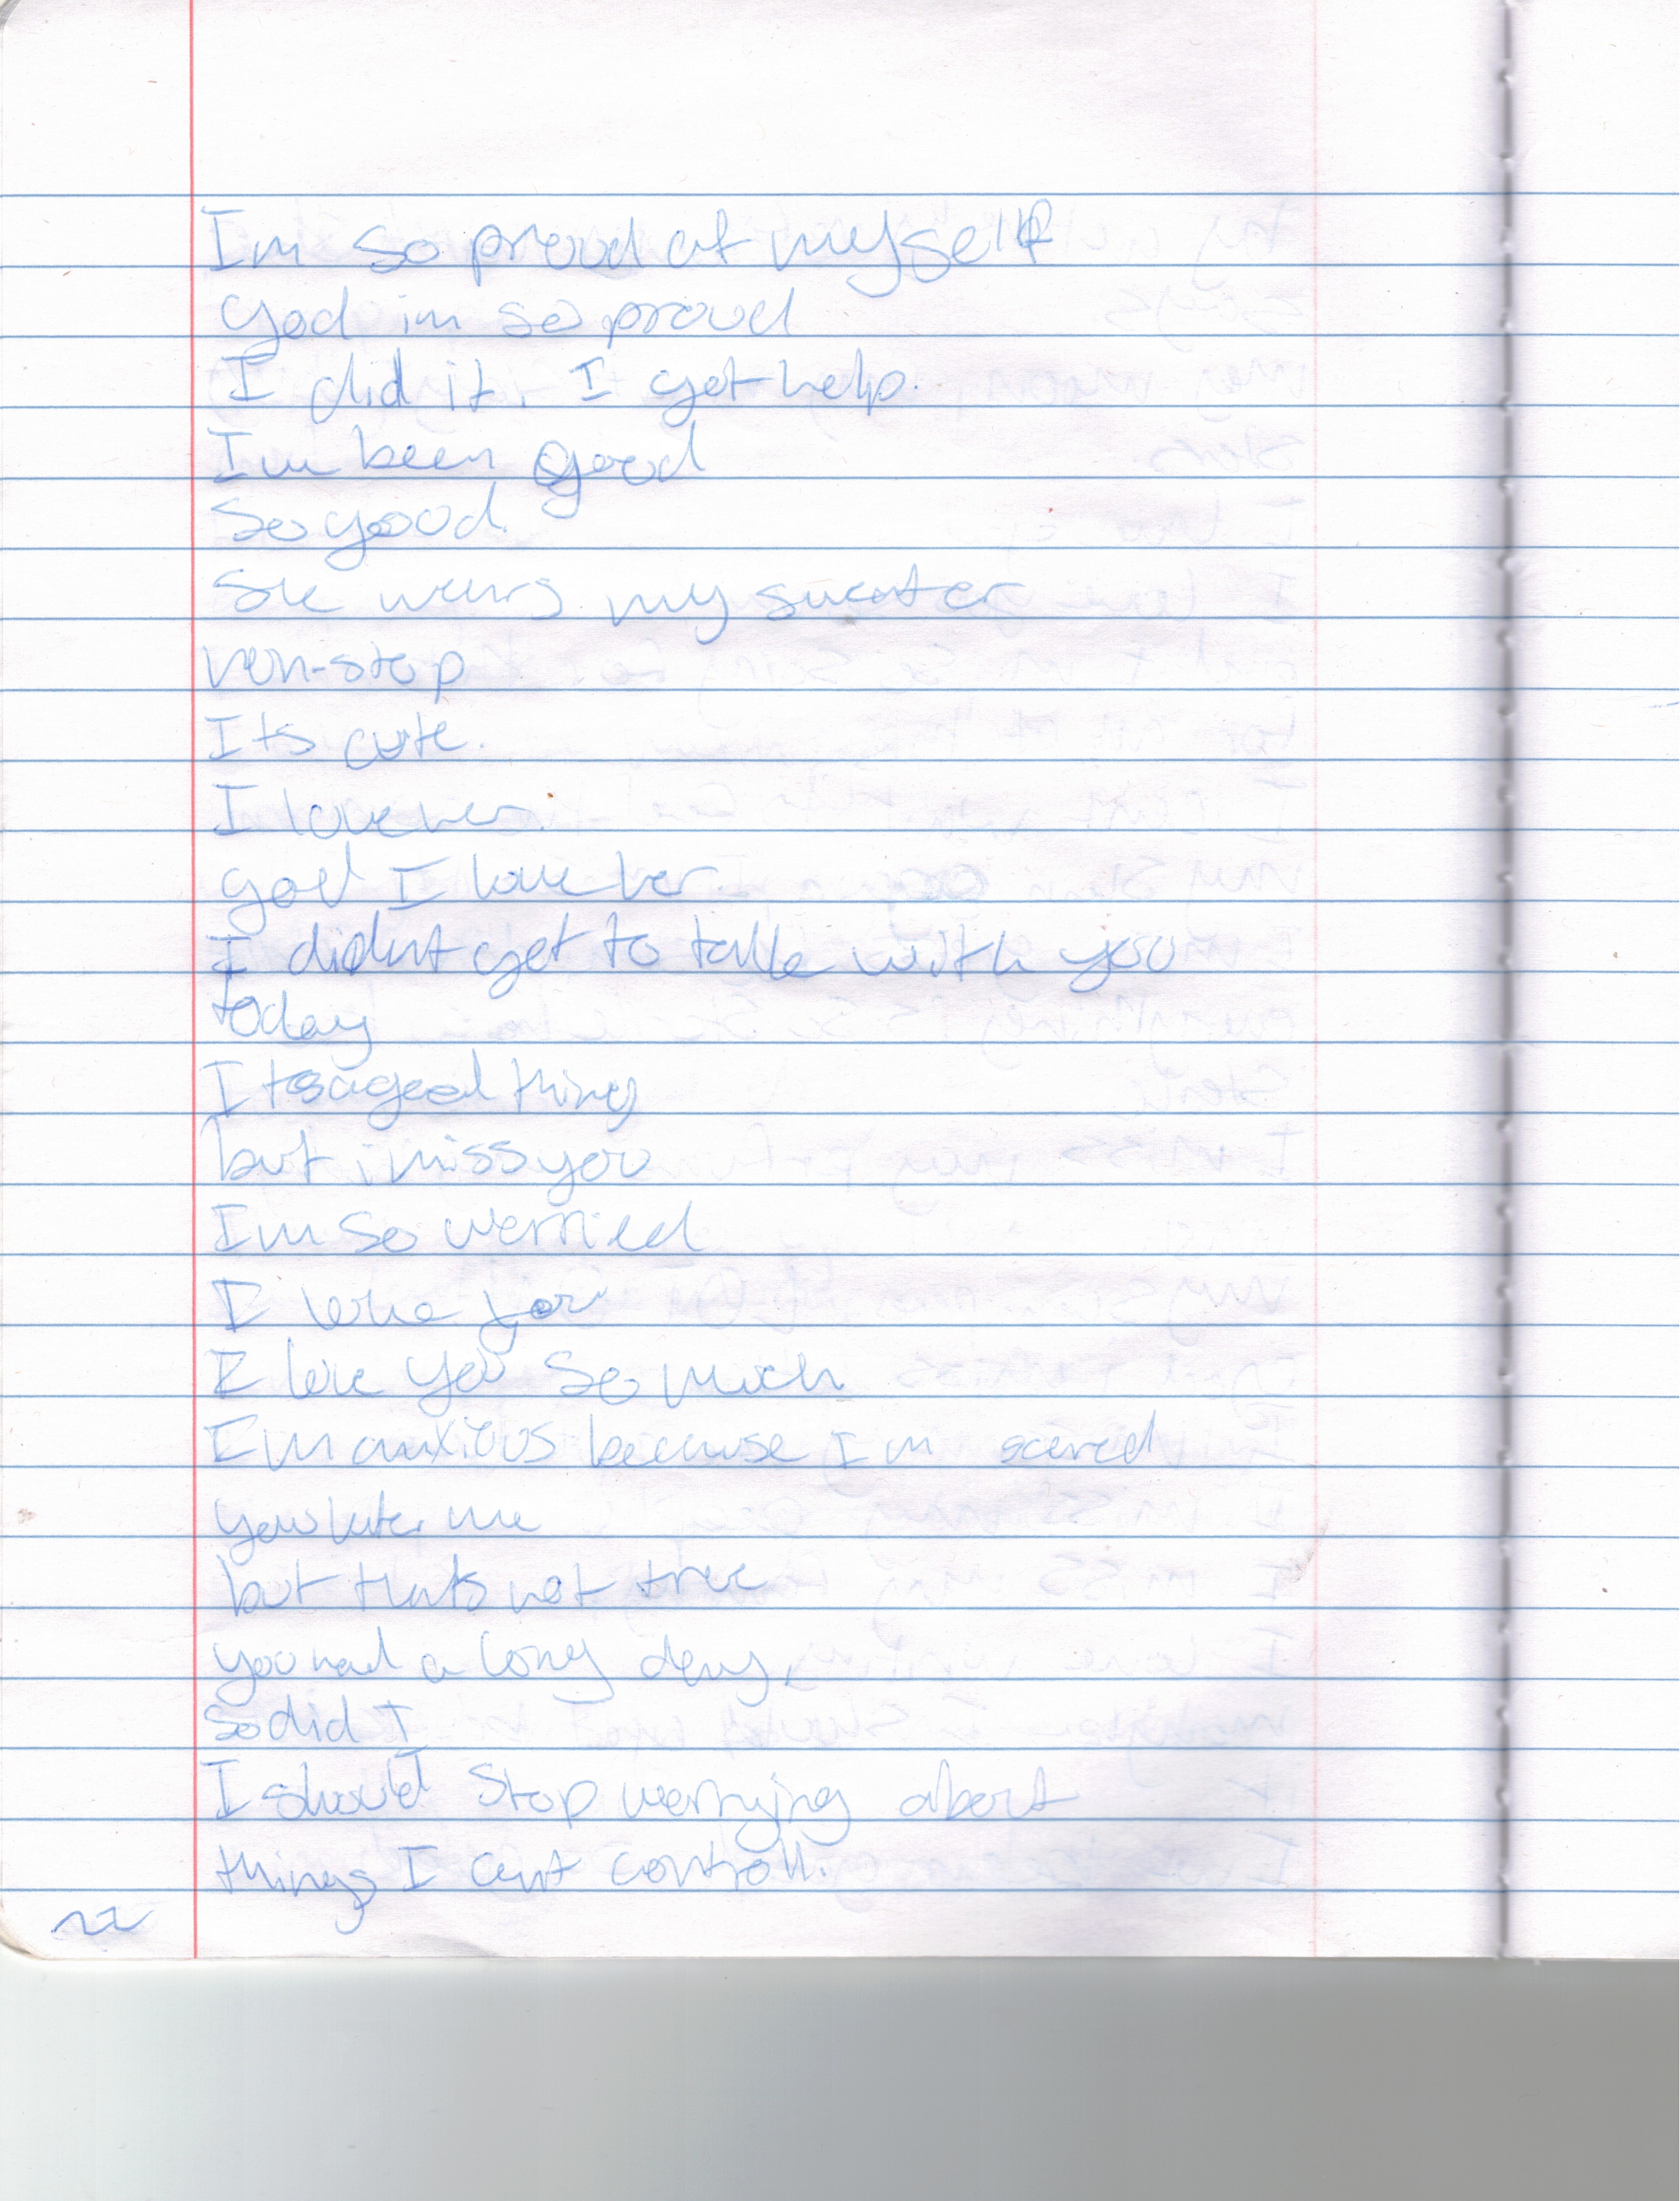 Im so proud of myself
god im so proud
I did it. I got help.
Im been good
So good
She wears my sweater
non-stop
Its cute.
I love her.
god I love her.
I didnt get to talk with you
today
Its a good thing
but i miss you
Im so worried
I love you
I love you so much
Im anxious because Im scared
you hate me
but thats not true
you had a long day,
so did I
I should stop worrying about
things I cant controll.